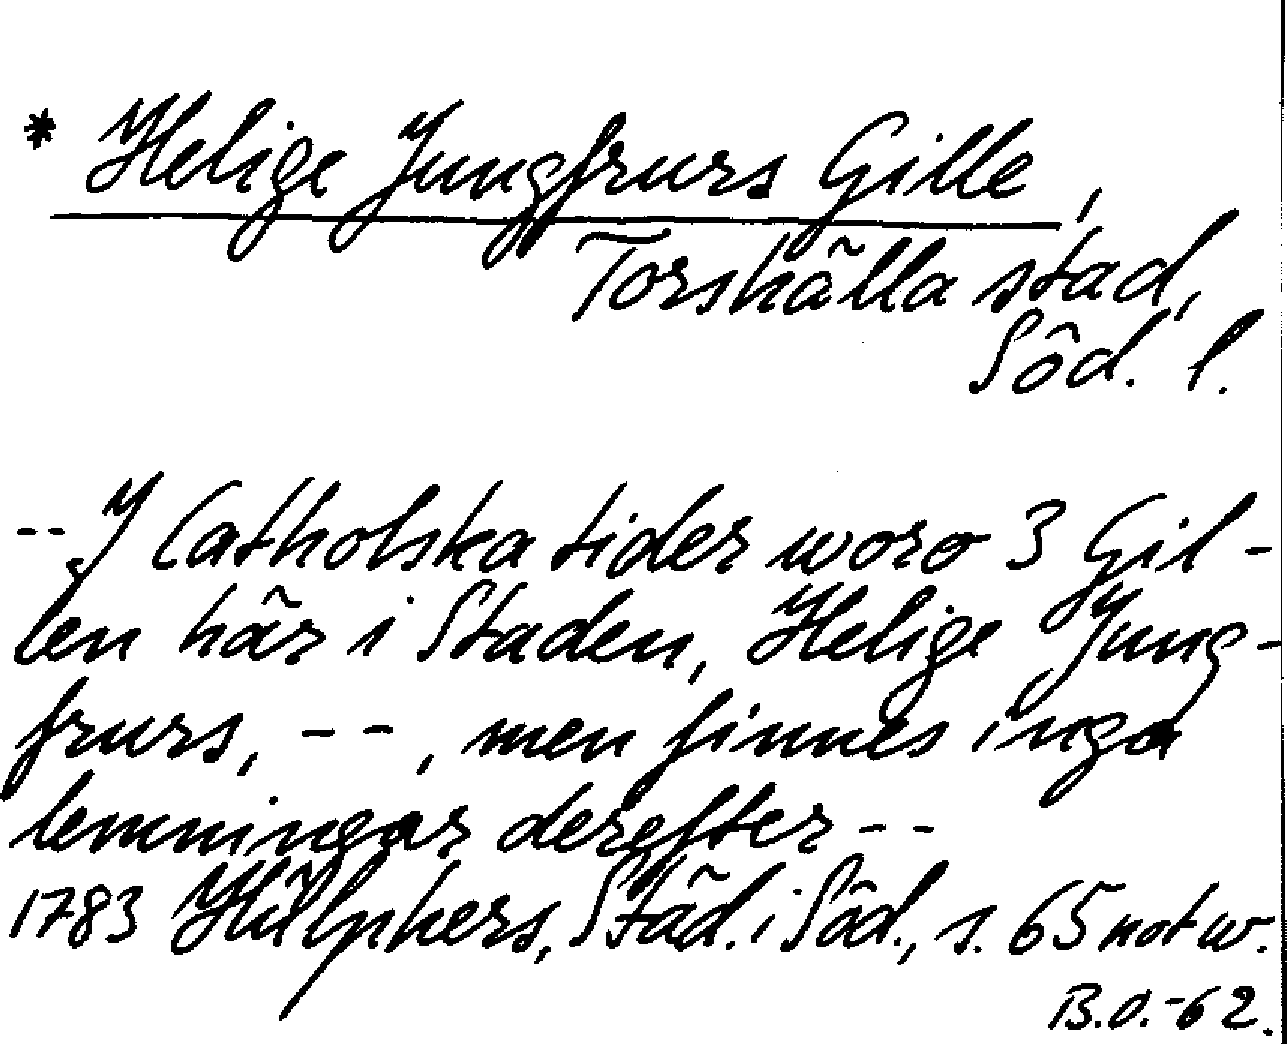 * Helige Jungfrurs Gille,
Torshälla stad,
Söd. l.
-- I Catholska tider woro 3 Gil-
len här i Staden, Helige Jung-
frurs, --, men finnes inga
lemningar derefter --
1783 Hülphers, Städ. i Söd., s. 65 not w.
B.O.-62.